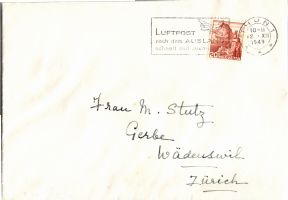 LUFTPOST
nach dem AUSLAND
schnell und
THUN 1
10-11
2. XII
1949
Frau M. Stutz
Gerbe
Wädenswil
Zürich